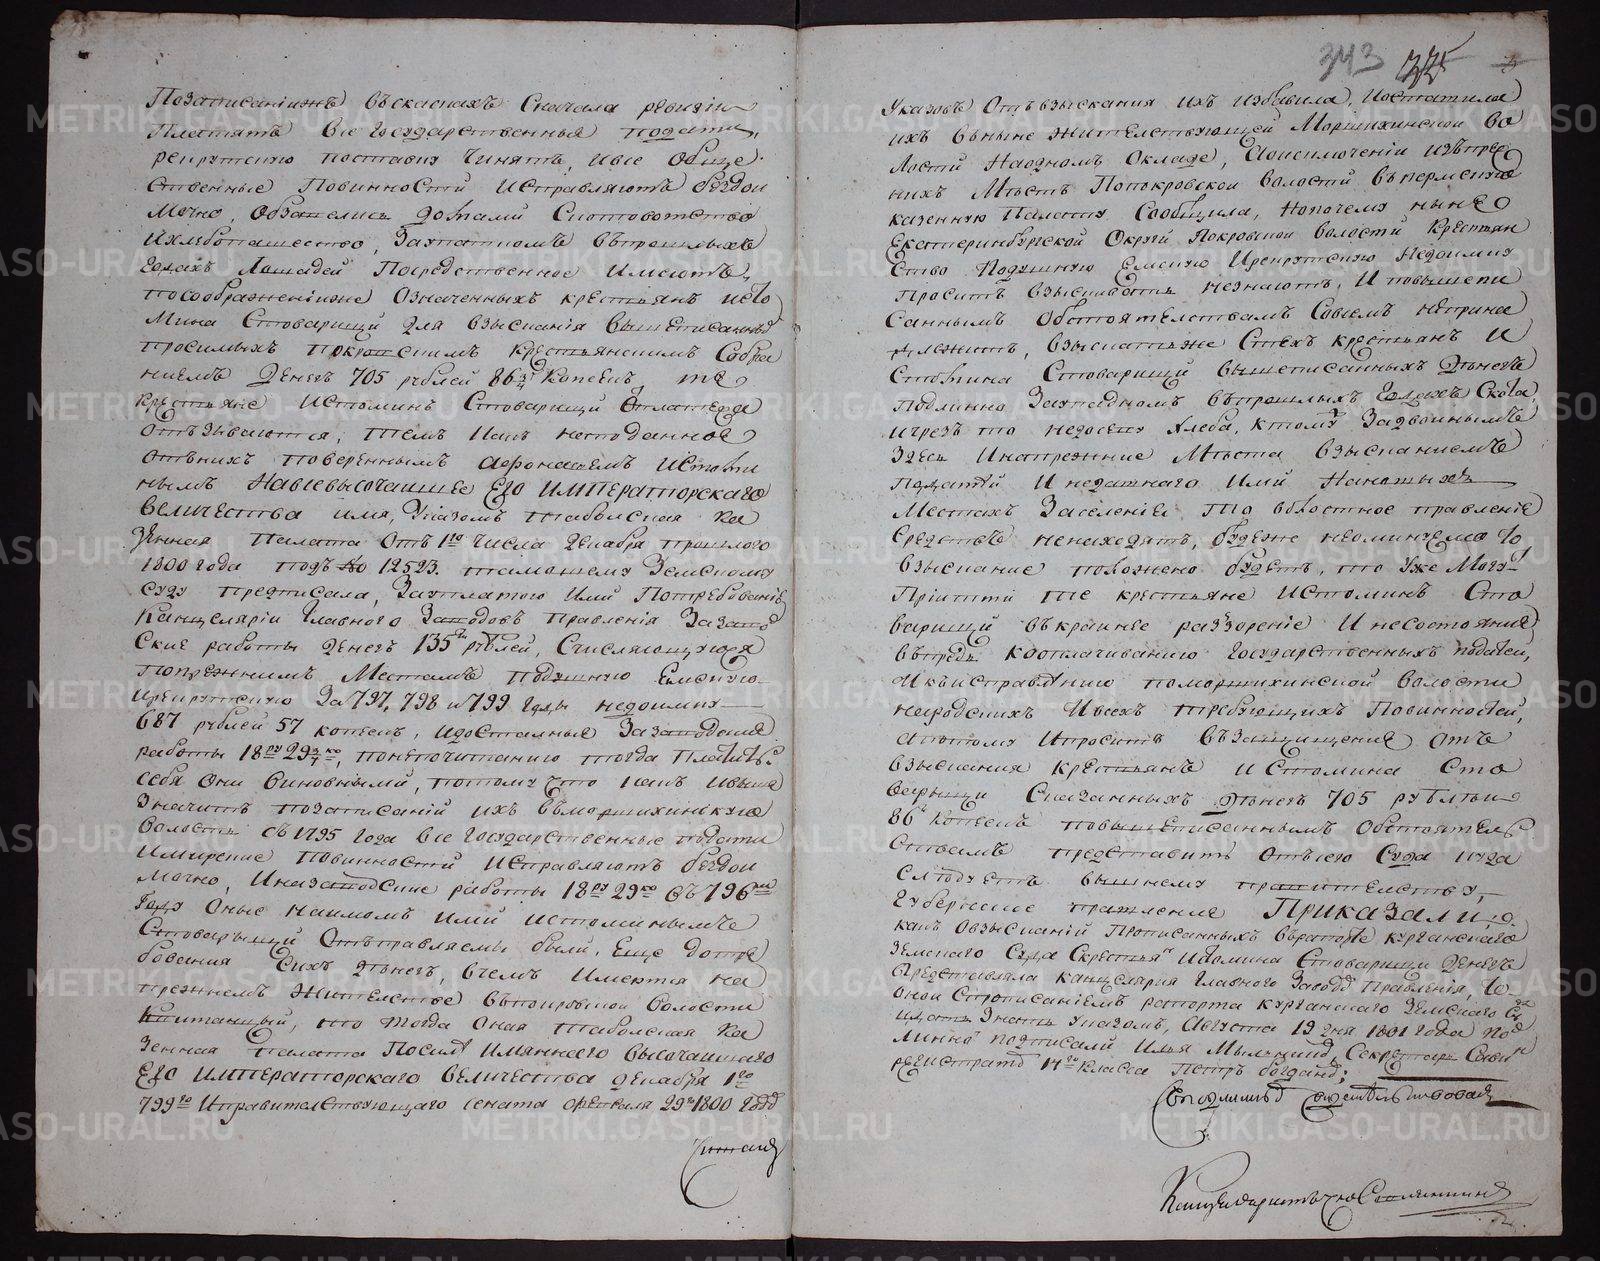 Позаписанiижъ въсказкахъ Сначала ревизiи
Платятъ все Государственные подати,
рекрутскую поставку Чинятъ, ивсе обще
ственные Повинности исправляютъ бездои
мочно, Обзавелись домами Скотоводствомъ
ихлебопашество, Захватомъ въпрошлыхъ
Годахъ Лошадей Посредственное имеютъ,
посоображенiиже Означенныхъ крестьянъ исто
мина Стоварищи для взысканiя вышеписанныхъ
просимыхъ покровскимъ крестьянскимъ Собра
нiемъ денегъ 705 рублей 86¾ копеекъ, те
крестьяне Истоминъ Стоварищи Отплатежа
Отзываются, темъ какъ неподанное
Отнихъ повереннымъ афонасьемъ Исто
нымъ Навсевысочайшее Его ИМПЕРАТОРСКАГО
ВЕЛИЧЕСТВА имя, Указомъ табольская Ка
Зенная Палата Отъ 1го Числа декабря прошлаго
1800 года подъ № 12523. тамошнему Земскому
суду предписала, Захватаго ими Потребованiю
Канцелярiи Главного Заводовъ Правленiя Завод
Ские работы денегъ 135ти рублей, Счисляющуюся
Попрежнимъ Местамъ подушную Емскую
ирекрутскую За 797, 798 и 799 Годы недоимку
687 рублей 57 копеекъ, идостальные За заводские
работы 18ру 29¾ ко, понепочитанiю тогда Платить
себя Они виновными, потому что какъ ивыше
Значитъ позаписанiи ихъ въмокроусовскую
Волость съ 1795 года все Государственные подати
имирские повинности исправляютъ бездои
мочно, иназаводские работы 18ру 29ко Съ 796го
Году Оные наимомъ ими истоминымъ
Стоварищи Отправляемы были, Еще дотре
бования Сихъ денегъ, вчемъ имеются на
прежнемъ жительстве въпокровской волости
Квитанцiи, что тогда Оная табольская Ка
Зенная палата Посилѣ имяннаго высочаишаго
Его ИМПЕРАТОРСКАГО ВЕЛИЧЕСТВА декабря 1го
799го иправительствующаго сената февраля 29го 1800 Году
Указовъ Отвзыскания ихъ избавила, иоставила
ихъ въныне жительствующей Во
лости Наодномъ Окладе, аоисключенiи изъпре
жнихъ Местъ Попокровской волости въпермскую
казенную Палату Сообщила, Нопочему ныне
Екатеринбургской Округи Покровской волости Крестьян
ство Подушную Емскую ирекрутскую Недоимку
Проситъ взыскивать незнаютъ, И повышепи
саннымъ Обстоятельствамъ Совсемъ непринад
лежитъ, взыскатьже Стехъ крестьянъ И
Стомина Стоварищи вышеписанныхъ денегъ
Подлинно Захватомъ въпрошлыхъ Годахъ Скота,
ичрезъ то недосеву хлеба, ктому Задвоинымъ
Здесь Инапрежние Места взысканiемъ
Податей И недатнаго ими Нанотыхъ
Местахъ Заселенiе То волостное правленiе
Средствъ ненаходятъ, будеже неоминуемо
взыскание положено будетъ, то уже Могутъ
Прiитти те крестьяне Истоминъ Сто
варищи въкраинее раззоренiе И несостоянiе
впредь кооплачиванiю Государственныхъ податей,
Икъисправленiю волости
народскихъ ивсехъ требующихъ Повинностей,
апотому ипроситъ въЗащищение отъ
взыскания крестьянъ и Стомина Сто
варищи Сказанныхъ денегъ 705 рублей
86ти копеекъ повышеписаннымъ Обстоятель
ствамъ представить Отсего Суда куда
Следуетъ вышнему правительству,
Губернское правленiе ПРИКАЗАЛИ,
какъ Овзысканiи прописанныхъ върапорте курганскаго
Земскаго Суда Скрестьянъ Истомина Стоварищи денегъ
Представляла канцелярия Главного Заводовъ правленiя, то
оной Спрописанiемъ рапорта курганскаго Земскаго Суда
дать Знать указомъ, Августа 19 дня 1801 года под
линно подписали Илья Секретарь
регистраторъ 14го класса Петръ богдановъ;
Съподлиннымъ Свидетельствовалъ
Читалъ
Канцеляристъ
343
335